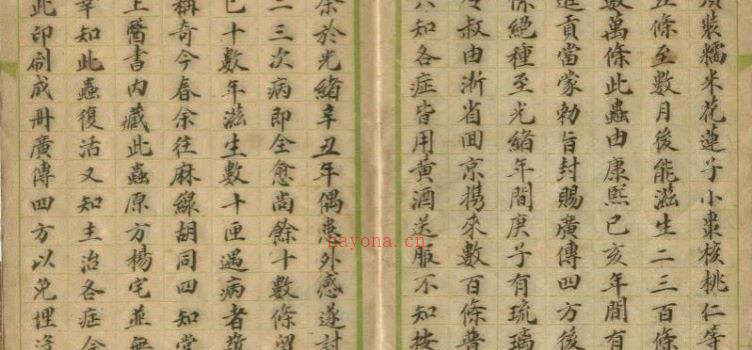 裝糯米花蓮子小棗核桃仁等
五條至數月後能滋生二三百條
數萬條此蟲由康熙己亥年間有
進貢當蒙勅旨封賜廣傳四方後
條絕種至光緒年間庚子有琉璃
令叔由浙省回京携來數百條普
只知各症皆用黄酒送服不知按
余於光緒辛丑年偶患外感遂討
二三次病即全愈尚餘十數條留
已十數年滋生數十匣遇病者
稱奇今春余往麻線胡同四知堂
上醫書内藏此蟲原方楊宅並無
幸知此蟲復活又知主治各症余
此印刷成冊廣傳四方以免埋没
nayona.cn